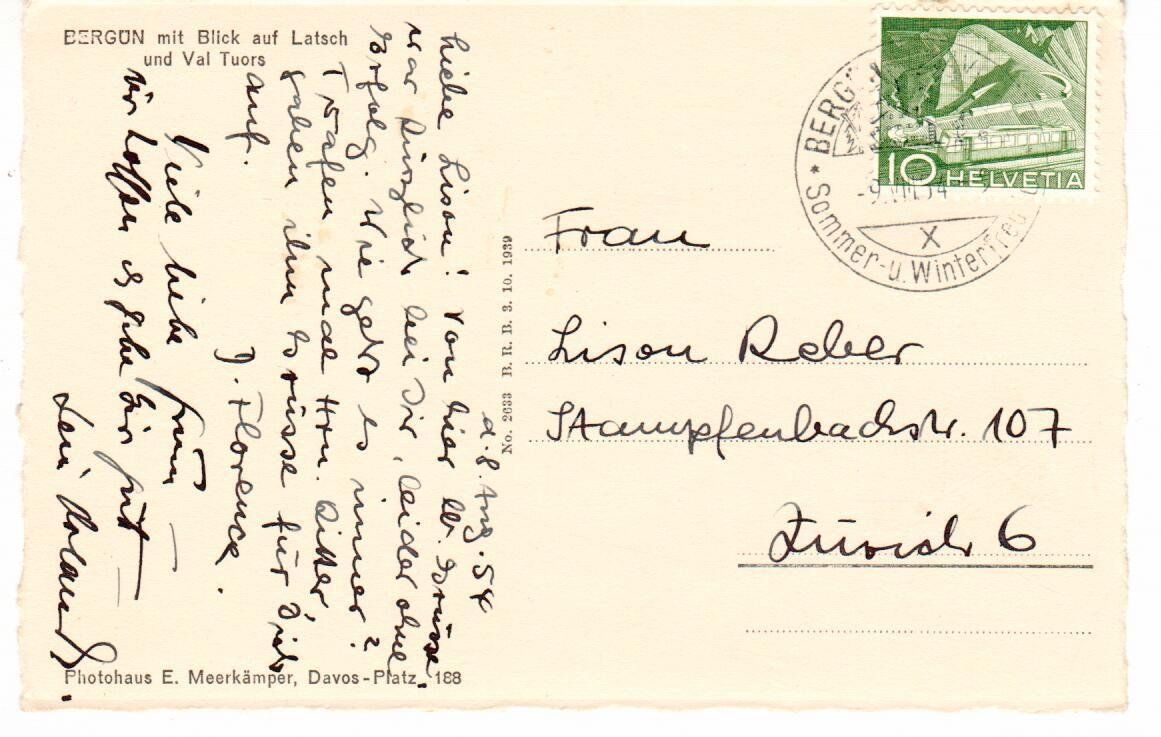 BERGÜN mit Blick auf Latsch
und Val Tuors
d. 8. Aug. 54
Liebe Lison! Von hier lb. Grüsse
war kürzlich bei Dir, leider ohne
Erfolg. Wie geht es immer?
Trafen mal Hrn. Ritter,
gaben ihm Grüsse für Dich
auf.
D. Florence.
Viele liebe Grüsse
wir hoffen es gehe Dir gut
Dein
No. 2633 B. R. B. 3. 10. 1939
Photohaus E. Meerkämper, Davos-Platz 188
10 HELVETIA
* BERGÜN
-9.VIII.54
X
Sommer- u. Winterfreu
Frau
Lison Reber
Stampfenbachstr. 107
Zürich 6